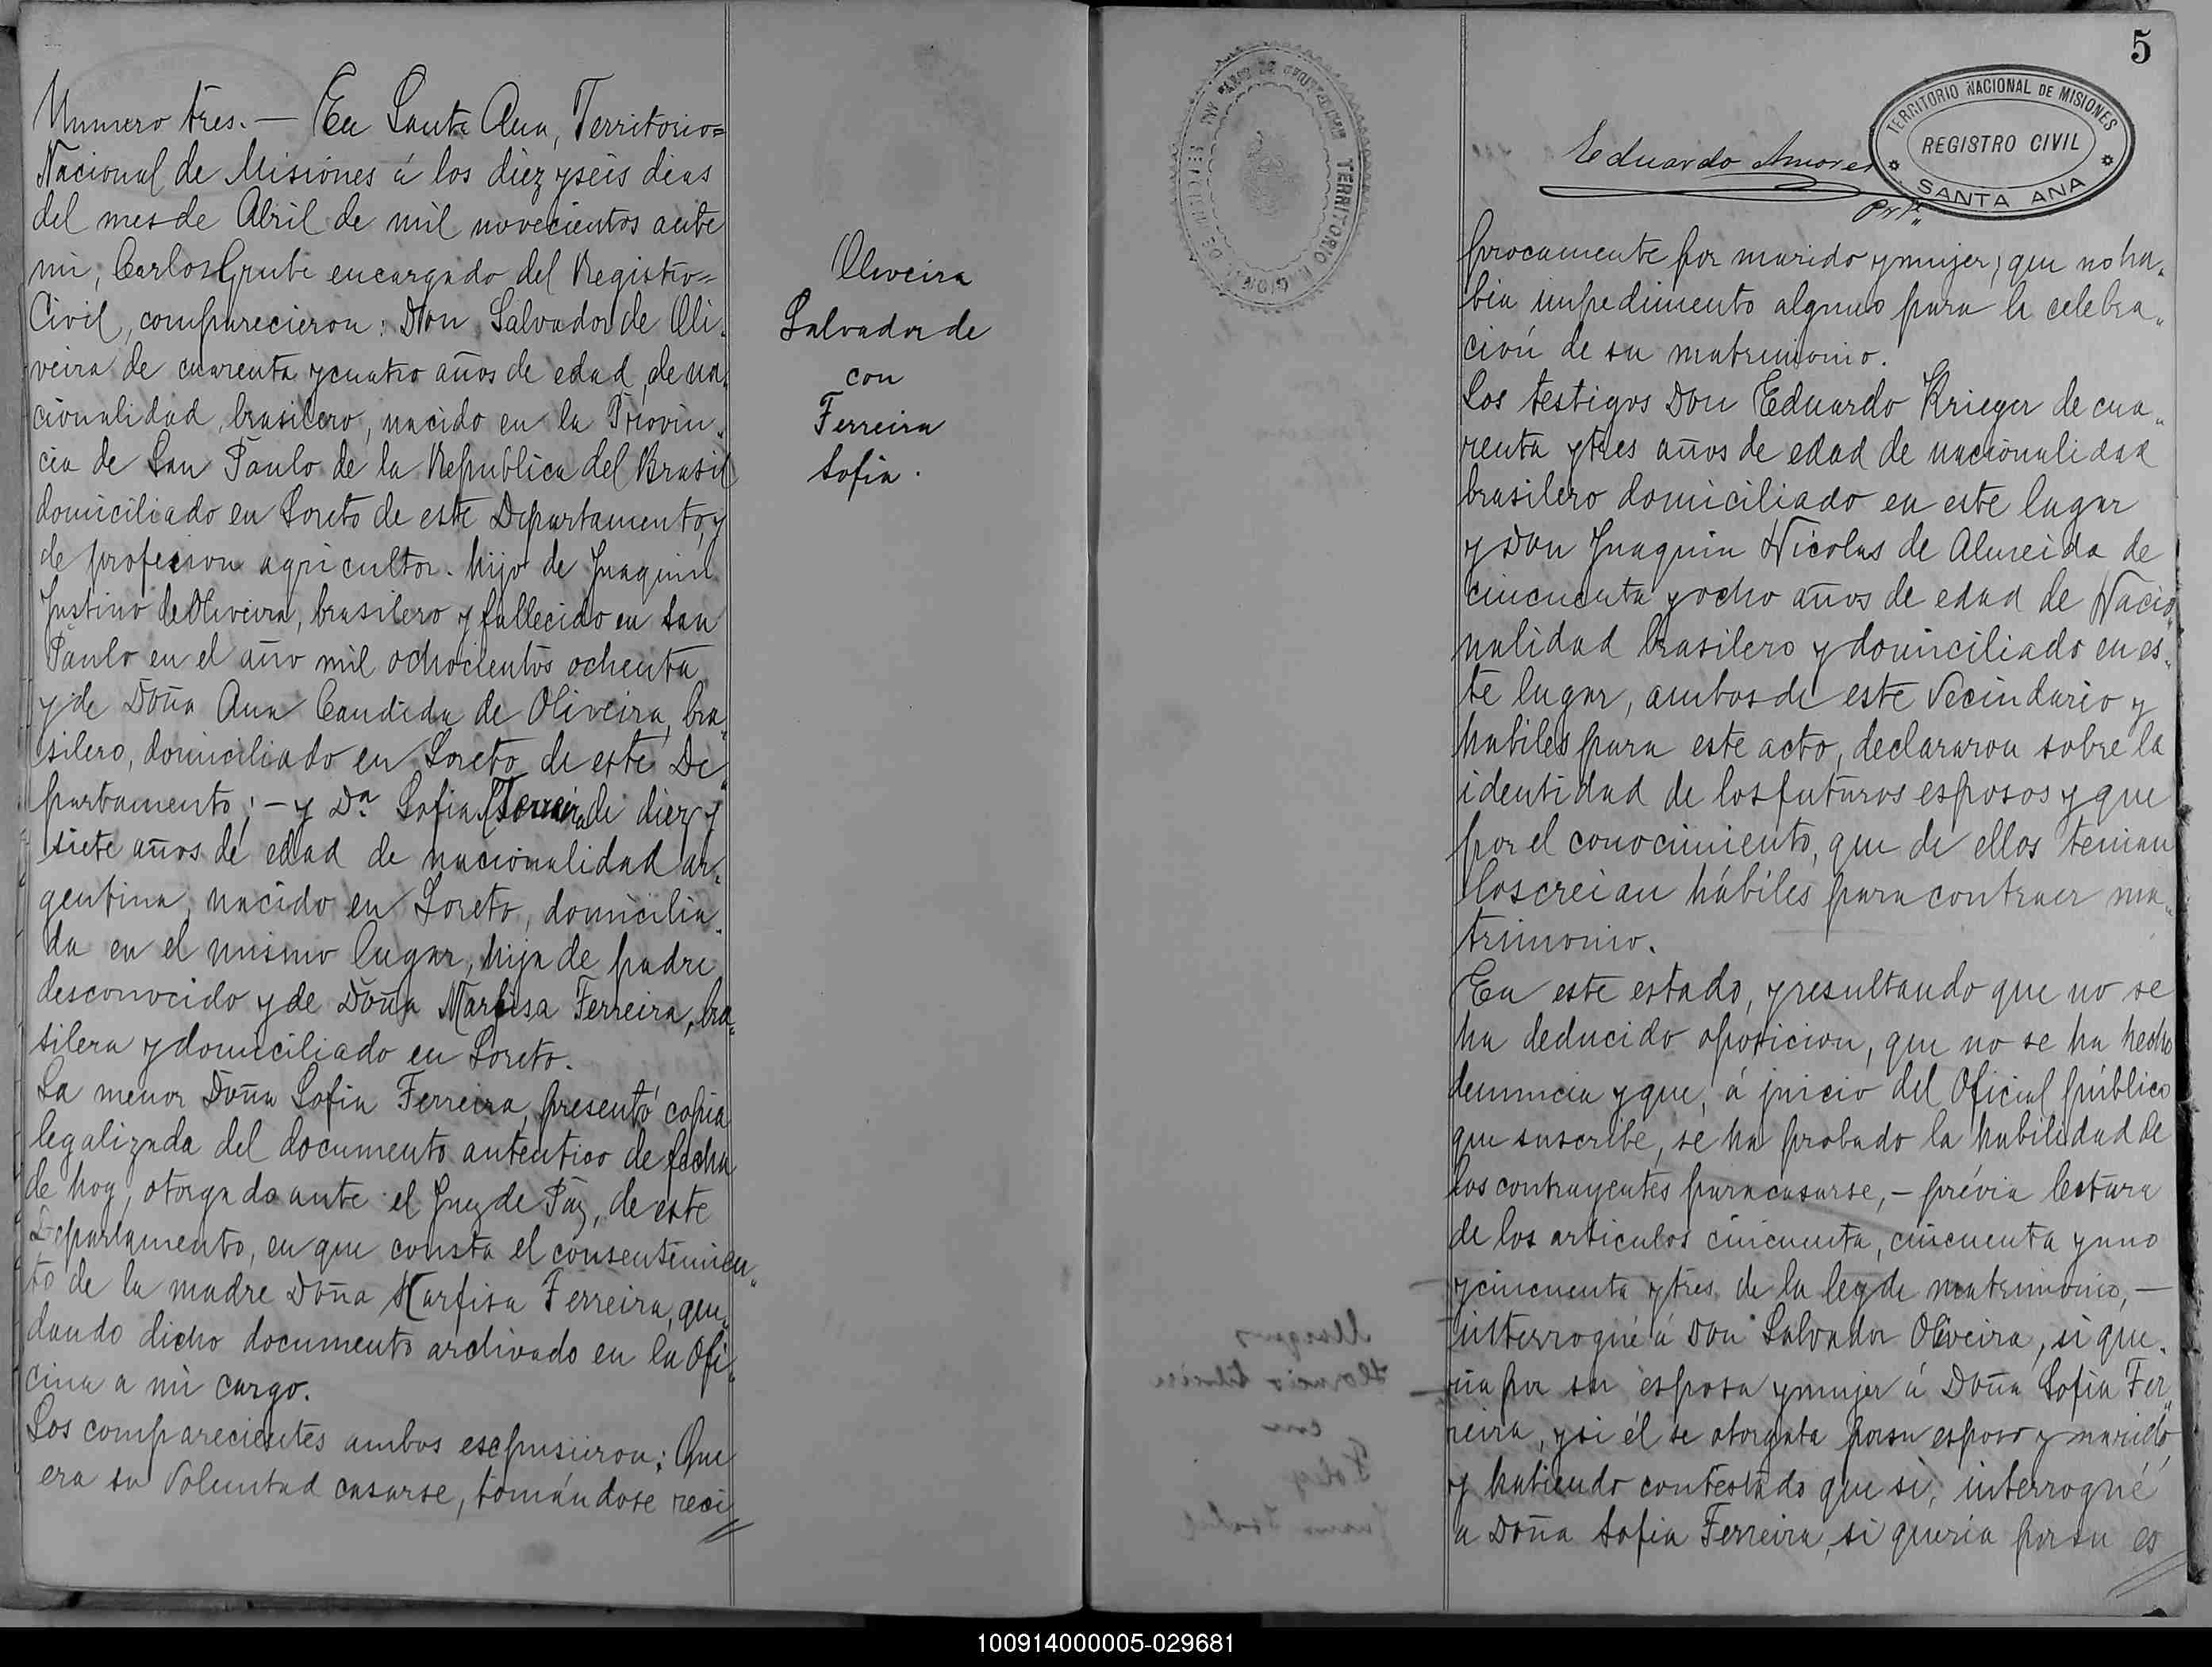 Numero tres.— En Santa Ana, Territorio=
Nacional de Misiónes á los diez y seis dias
del mes de Abril de mil novecientos ante
mi, Carlos Grube encargado del Registro=
Civil, comparecieron: Don Salvador de Oli„
veira de cuarenta y cuatro años de edad, de na„
cionalidad brasilero, nacido en la Provin„
cia de San Paulo de la Republica del Brasil
domiciliado en Loreto de este Departamento, y
de profesion agricultor. hijo de Juaquin
Justino de Oliveira, brasilero y fallecido en San
Paulo en el año mil ochocientos ochenta
y de Doña Ana Candida de Oliveira, bra„
silero, domiciliado en Loreto de este De„
partamento; – y Dª Sofia Ferreira de diez y
siete años de edad de nacionalidad ar„
gentina, nacido en Loreto, domicilia„
da en el mismo lugar, hija de padre
desconocido y de Doña Marfisa Ferreira, bra„
silera y domiciliado en Loreto.
La menor Doña Sofia Ferreira, presentó copia
legalizada del documento autentico de fecha
de hoy, otorgado ante el Juez de Paz, de este
Departamento, en que consta el consentimien„
to de la madre Doña Marfisa Ferreira, que„
dando dicho documento archivado en la Ofi„
cina a mi cargo.
Los comparecientes ambos escpusieron: Que
era su Voluntad casarse, tomándose reci
Oliveira
Salvador de
con
Ferreira
Sofia.
5
TERRITORIO NACIONAL DE MISIONES
REGISTRO CIVIL
SANTA ANA
Eduardo Amores
procamente por marido y mujer, que no ha„
bia impedimento alguno para la celebra„
ción de su matrimonio.
Los testigos Don Eduardo Krieger de cua„
renta y tres años de edad de nacionalidad
brasilero domiciliado en este lugar
y Don Juaquin Nicolas de Almeida de
cincuenta y ocho años de edad de Nacio„
nalidad brasilero y domiciliado en es„
te lugar, ambos de este Vecindario y
habiles para este acto, declararon sobre la
identidad de los futuros esposos y que
por el conocimiento, que de ellos tenian
los creian hábiles para contraer ma„
trimonio.
En este estado, y resultando que no se
ha deducido oposicion, que no se ha hecho
denuncia y que, á juicio del Oficial público
que suscribe, se ha probado la habilidad de
los contrayentes para casarse, – prévia lectura
de los articulos cincuenta, cincuenta y uno
y cincuenta y tres de la ley de matrimonio, —
interrogué á Don Salvador Oliveira, si que„
ria por su esposa y mujer á Doña Sofia Fer„
reira, y si él se otorgaba por su esposo y marido,
y habiendo contestado que si, interrogué
a Doña Sofia Ferreira, si queria por su es
100914000005-029681